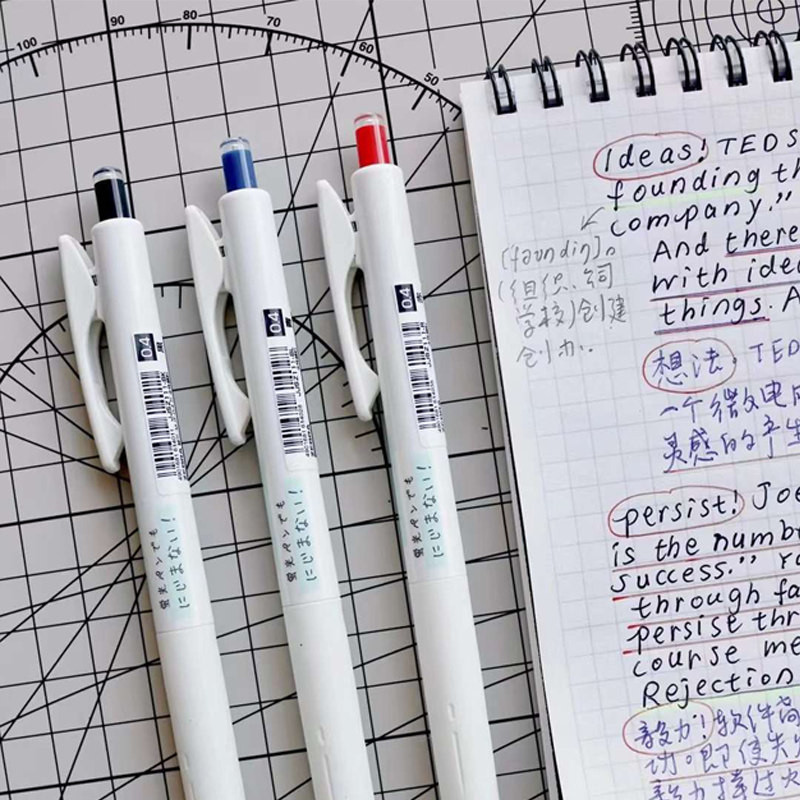 100
90
80
70
60
50
0.4
蛍光ペンでも
にじまない!
0.4
蛍光ペンでも
にじまない!
0.4
蛍光ペンでも
にじまない!
Ideas! TEDS
founding th
company."
And there
with idea
things. A
(组织、
学校)创建
创办.
想法. TED
一个微电
灵感的产生
persist! Joe
is the numb
success." Yo
through fa
persise thr
course me
Rejection
毅力!软件
功。即使失
毅力撑过